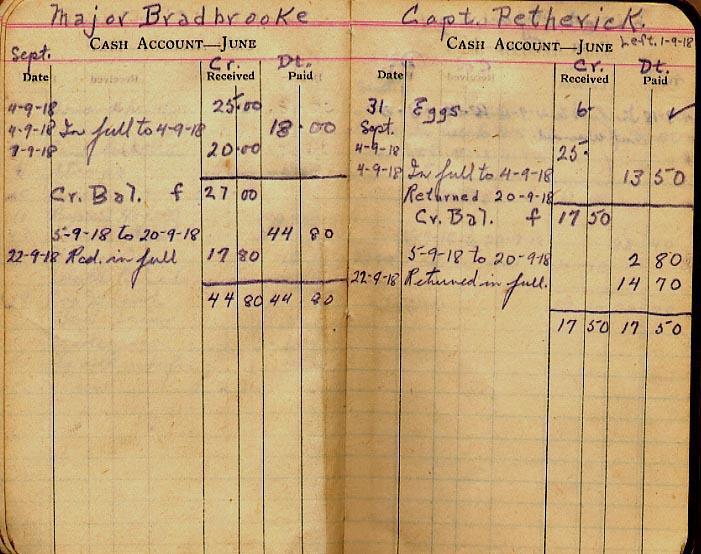 Major Bradbrooke
CASH ACCOUNT—JUNE
Sept.
Cr. Dt.
Date Received Paid
4-9-18 25.00
4-9-18 In full to 4-9-18 18.00
9-9-18 20.00
Cr. Bal. f 27 00
5-9-18 to 20-9-18 44 80
22-9-18 Recd. in full 17 80
44 80 44 80
Capt. Petherick.
CASH ACCOUNT—JUNE Left. 1-9-18
Cr. Dt.
Date Received Paid
31 Eggs 6- ✓
Sept.
4-9-18 25-
4-9-18 In full to 4-9-18 13 50
Returned 20-9-18
Cr. Bal. f 17 50
5-9-18 to 20-9-18 2 80
22-9-18 Returned in full. 14 70
17 50 17 50